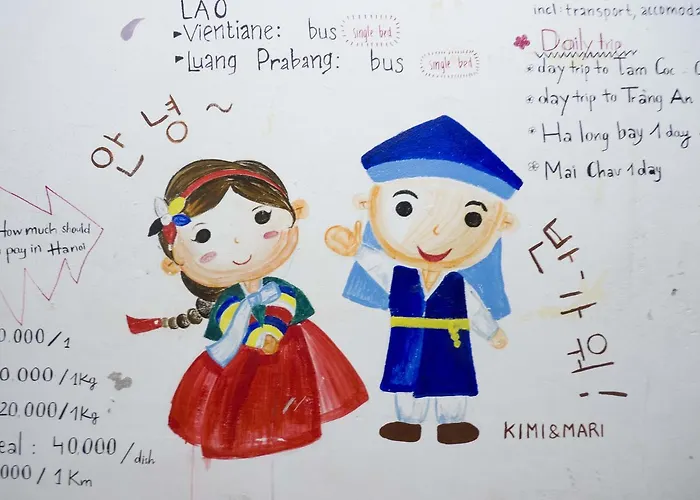 LAO
▸Vientiane: bus single bed
▸Luang Prabang: bus single bed
incl: transport, accomoda
Daily trip
* day trip to Tam Coc - C
* day trip to Tràng An
* Ha long bay 1 day
* Mai Chau 1 day
안녕~
How much should
pay in Hanoi
0.000/1
0.000/1Kg
20.000/1Kg
eal: 40.000/dish
000/1Km
KIMI&MARI